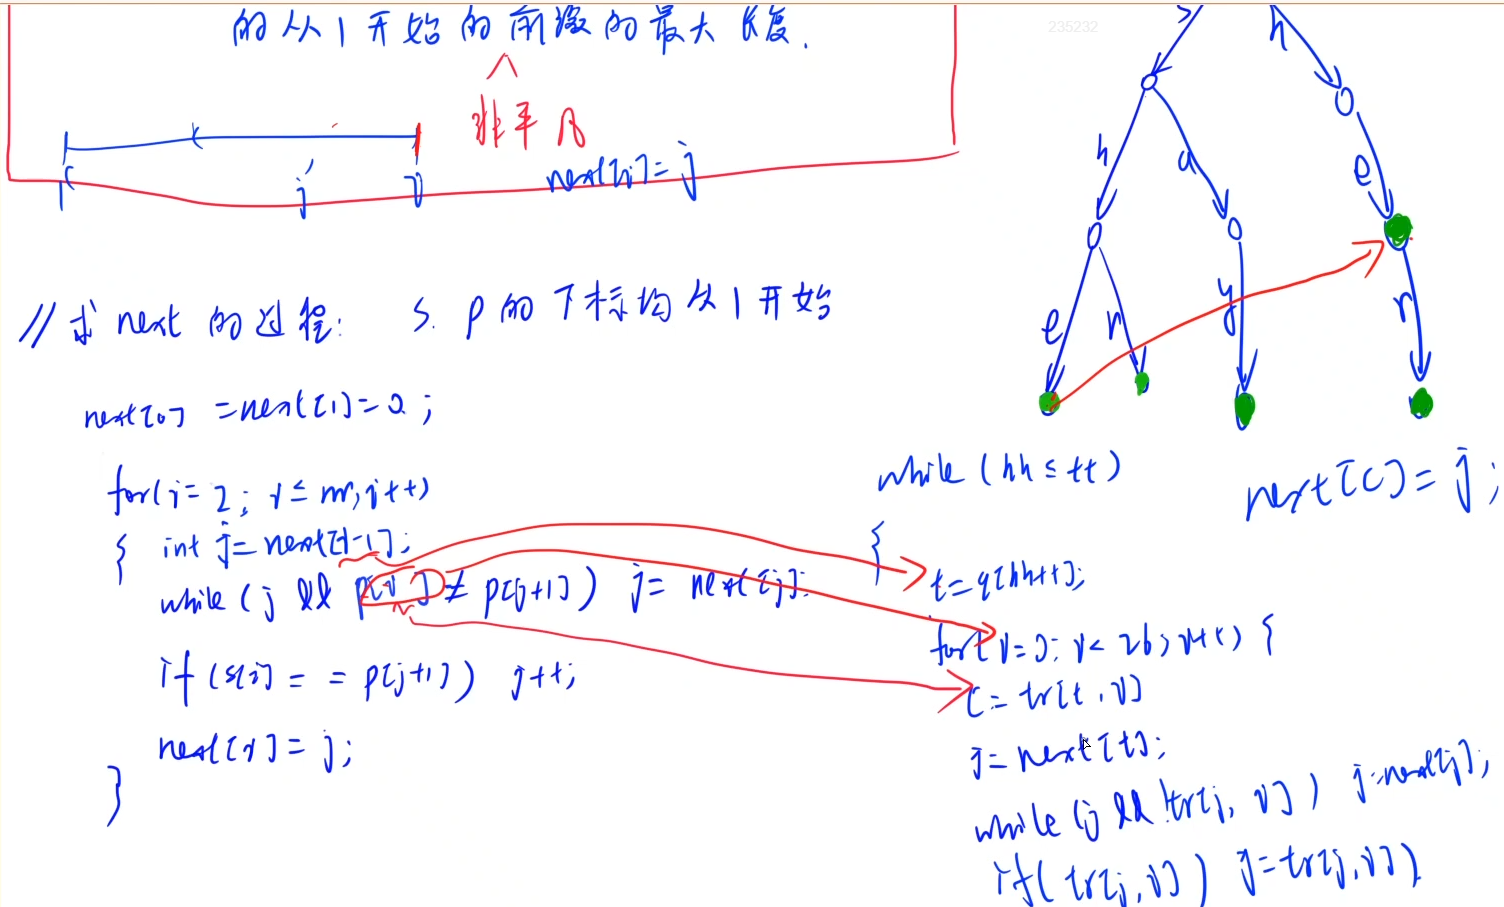 的从1开始的前缀的最大长度.
235232
非平凡
next[i]=j
1
j
i
s
h
h
a
e
e
r
y
r
//求next的过程: S. P的下标均从1开始
next[0] =next[1]=0;
for(i=2; i≤m; i++)
{ int j=next[i-1];
while(j && p[i]≠p[j+1]) j=next[j];
if(s[i]==p[j+1]) j++;
next[i]=j;
}
while(hh≤tt)
{
t=q[hh++];
for(i=0; i<26; i++) {
c=tr[t,i]
j=next[t];
while(j && !tr[j,i]) j=next[j];
if(tr[j,i]) j=tr[j,i])
next[c]=j;